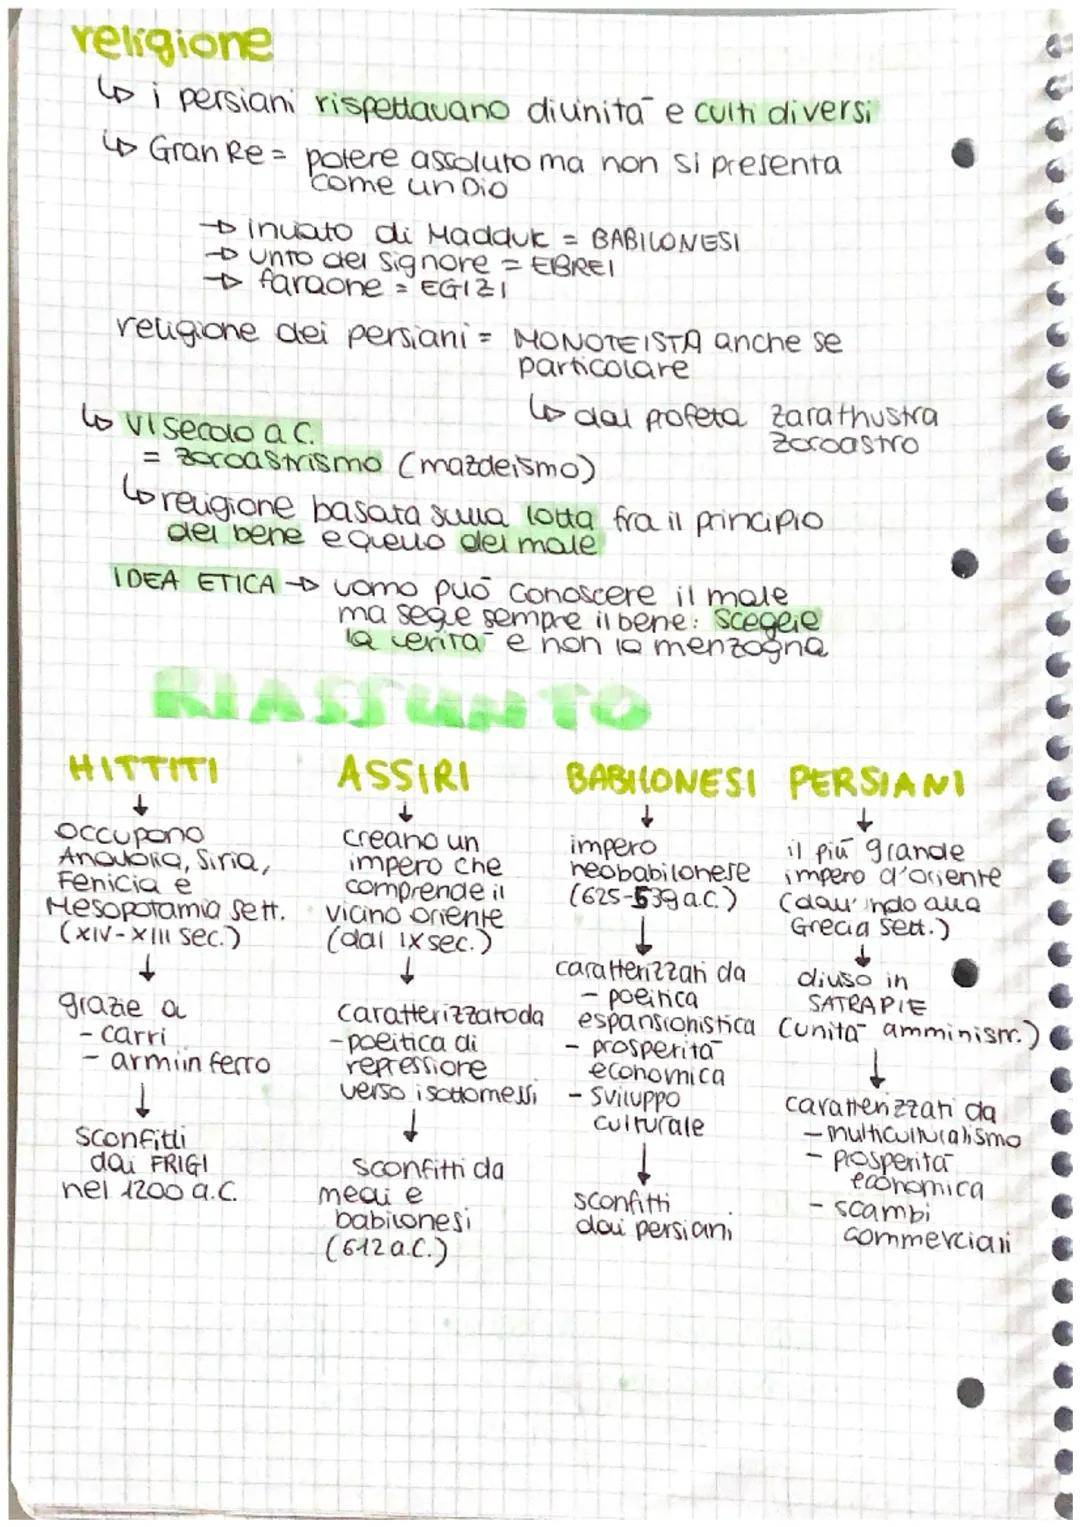 religione
↳ i persiani rispettavano divinità e culti diversi
↳ Gran Re = potere assoluto ma non si presenta
come un Dio
→ inviato di Madduk = BABILONESI
→ unto del Signore = EBREI
→ faraone = EGIZI
religione dei persiani = MONOTEISTA anche se
particolare
↳ dal profeta Zarathustra
Zoroastro
↳ VI secolo a.C.
= zoroastrismo (mazdeismo)
↳ religione basata sulla lotta fra il principio
del bene e quello del male
IDEA ETICA → uomo può conoscere il male
ma segue sempre il bene: sceglie
la verità e non la menzogna
RIASSUNTO
HITTITI
↓
occupano
Anatolia, Siria,
Fenicia e
Mesopotamia sett.
(XIV-XIII sec.)
↓
grazie a
- carri
- armi in ferro
↓
sconfitti
dai FRIGI
nel 1200 a.C.
ASSIRI
↓
creano un
impero che
comprende il
vicino oriente
(dal IX sec.)
↓
caratterizzato da
- politica di
repressione
verso i sottomessi
↓
sconfitti da
medi e
babilonesi
(612 a.C.)
BABILONESI
↓
impero
neobabilonese
(625-539 a.C.)
↓
caratterizzati da
- politica
espansionistica
- prosperità
economica
- sviluppo
culturale
↓
sconfitti
dai persiani
PERSIANI
↓
il più grande
impero d'oriente
(dall'indo alla
Grecia sett.)
↓
diviso in
SATRAPIE
(unità amministr.)
↓
caratterizzati da
- multiculturalismo
- prosperità
economica
- scambi
commerciali